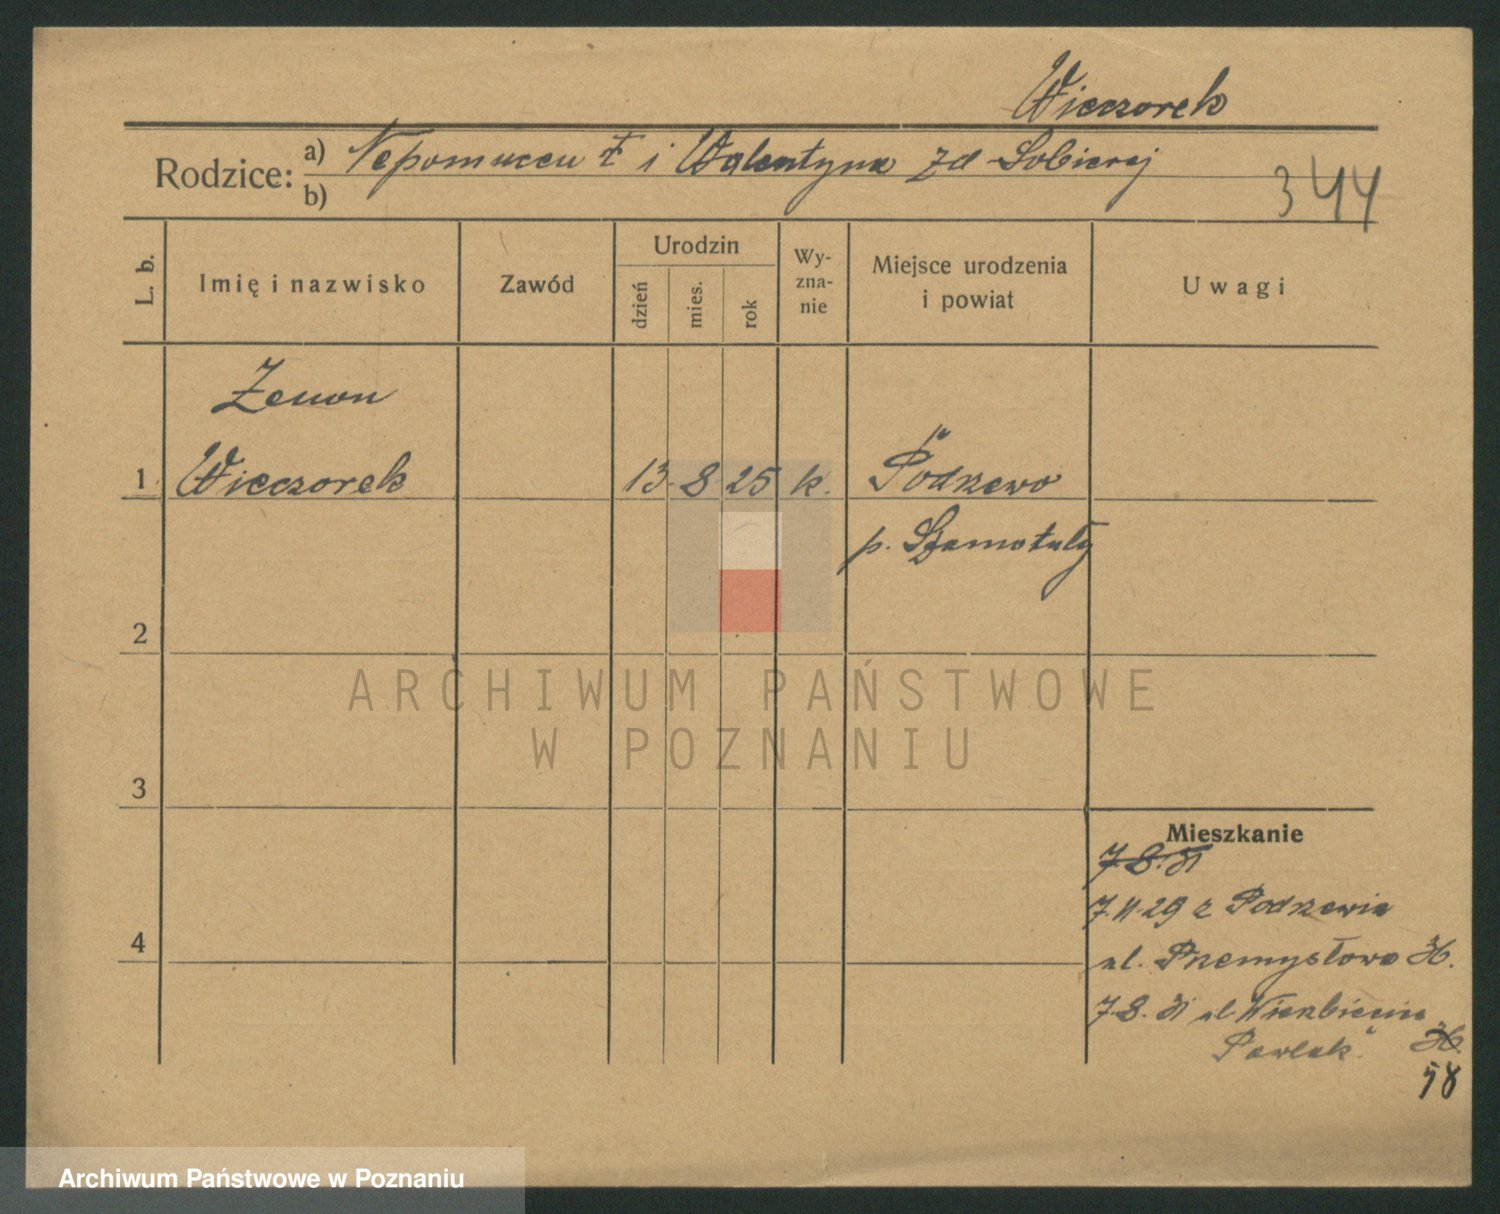 Wieczorek
Rodzice: a) Nepomucen † i Walentyna zd Sobieraj
b)
344
L. b.
Imię i nazwisko
Zawód
Urodzin
dzień
mies.
rok
Wy-
zna-
nie
Miejsce urodzenia
i powiat
Uwagi
Zenon
1 Wieczorek 13 8 25 k. Podrzewo
p. Szamotuły
2
3
4
Mieszkanie
7.8.31
7.11.29 z Podrzewia
ul. Przemysłowa 36.
7.8.31 ul Wierzbięcie
Pawlak 36.
58
ARCHIWUM PAŃSTWOWE
W POZNANIU
Archiwum Państwowe w Poznaniu